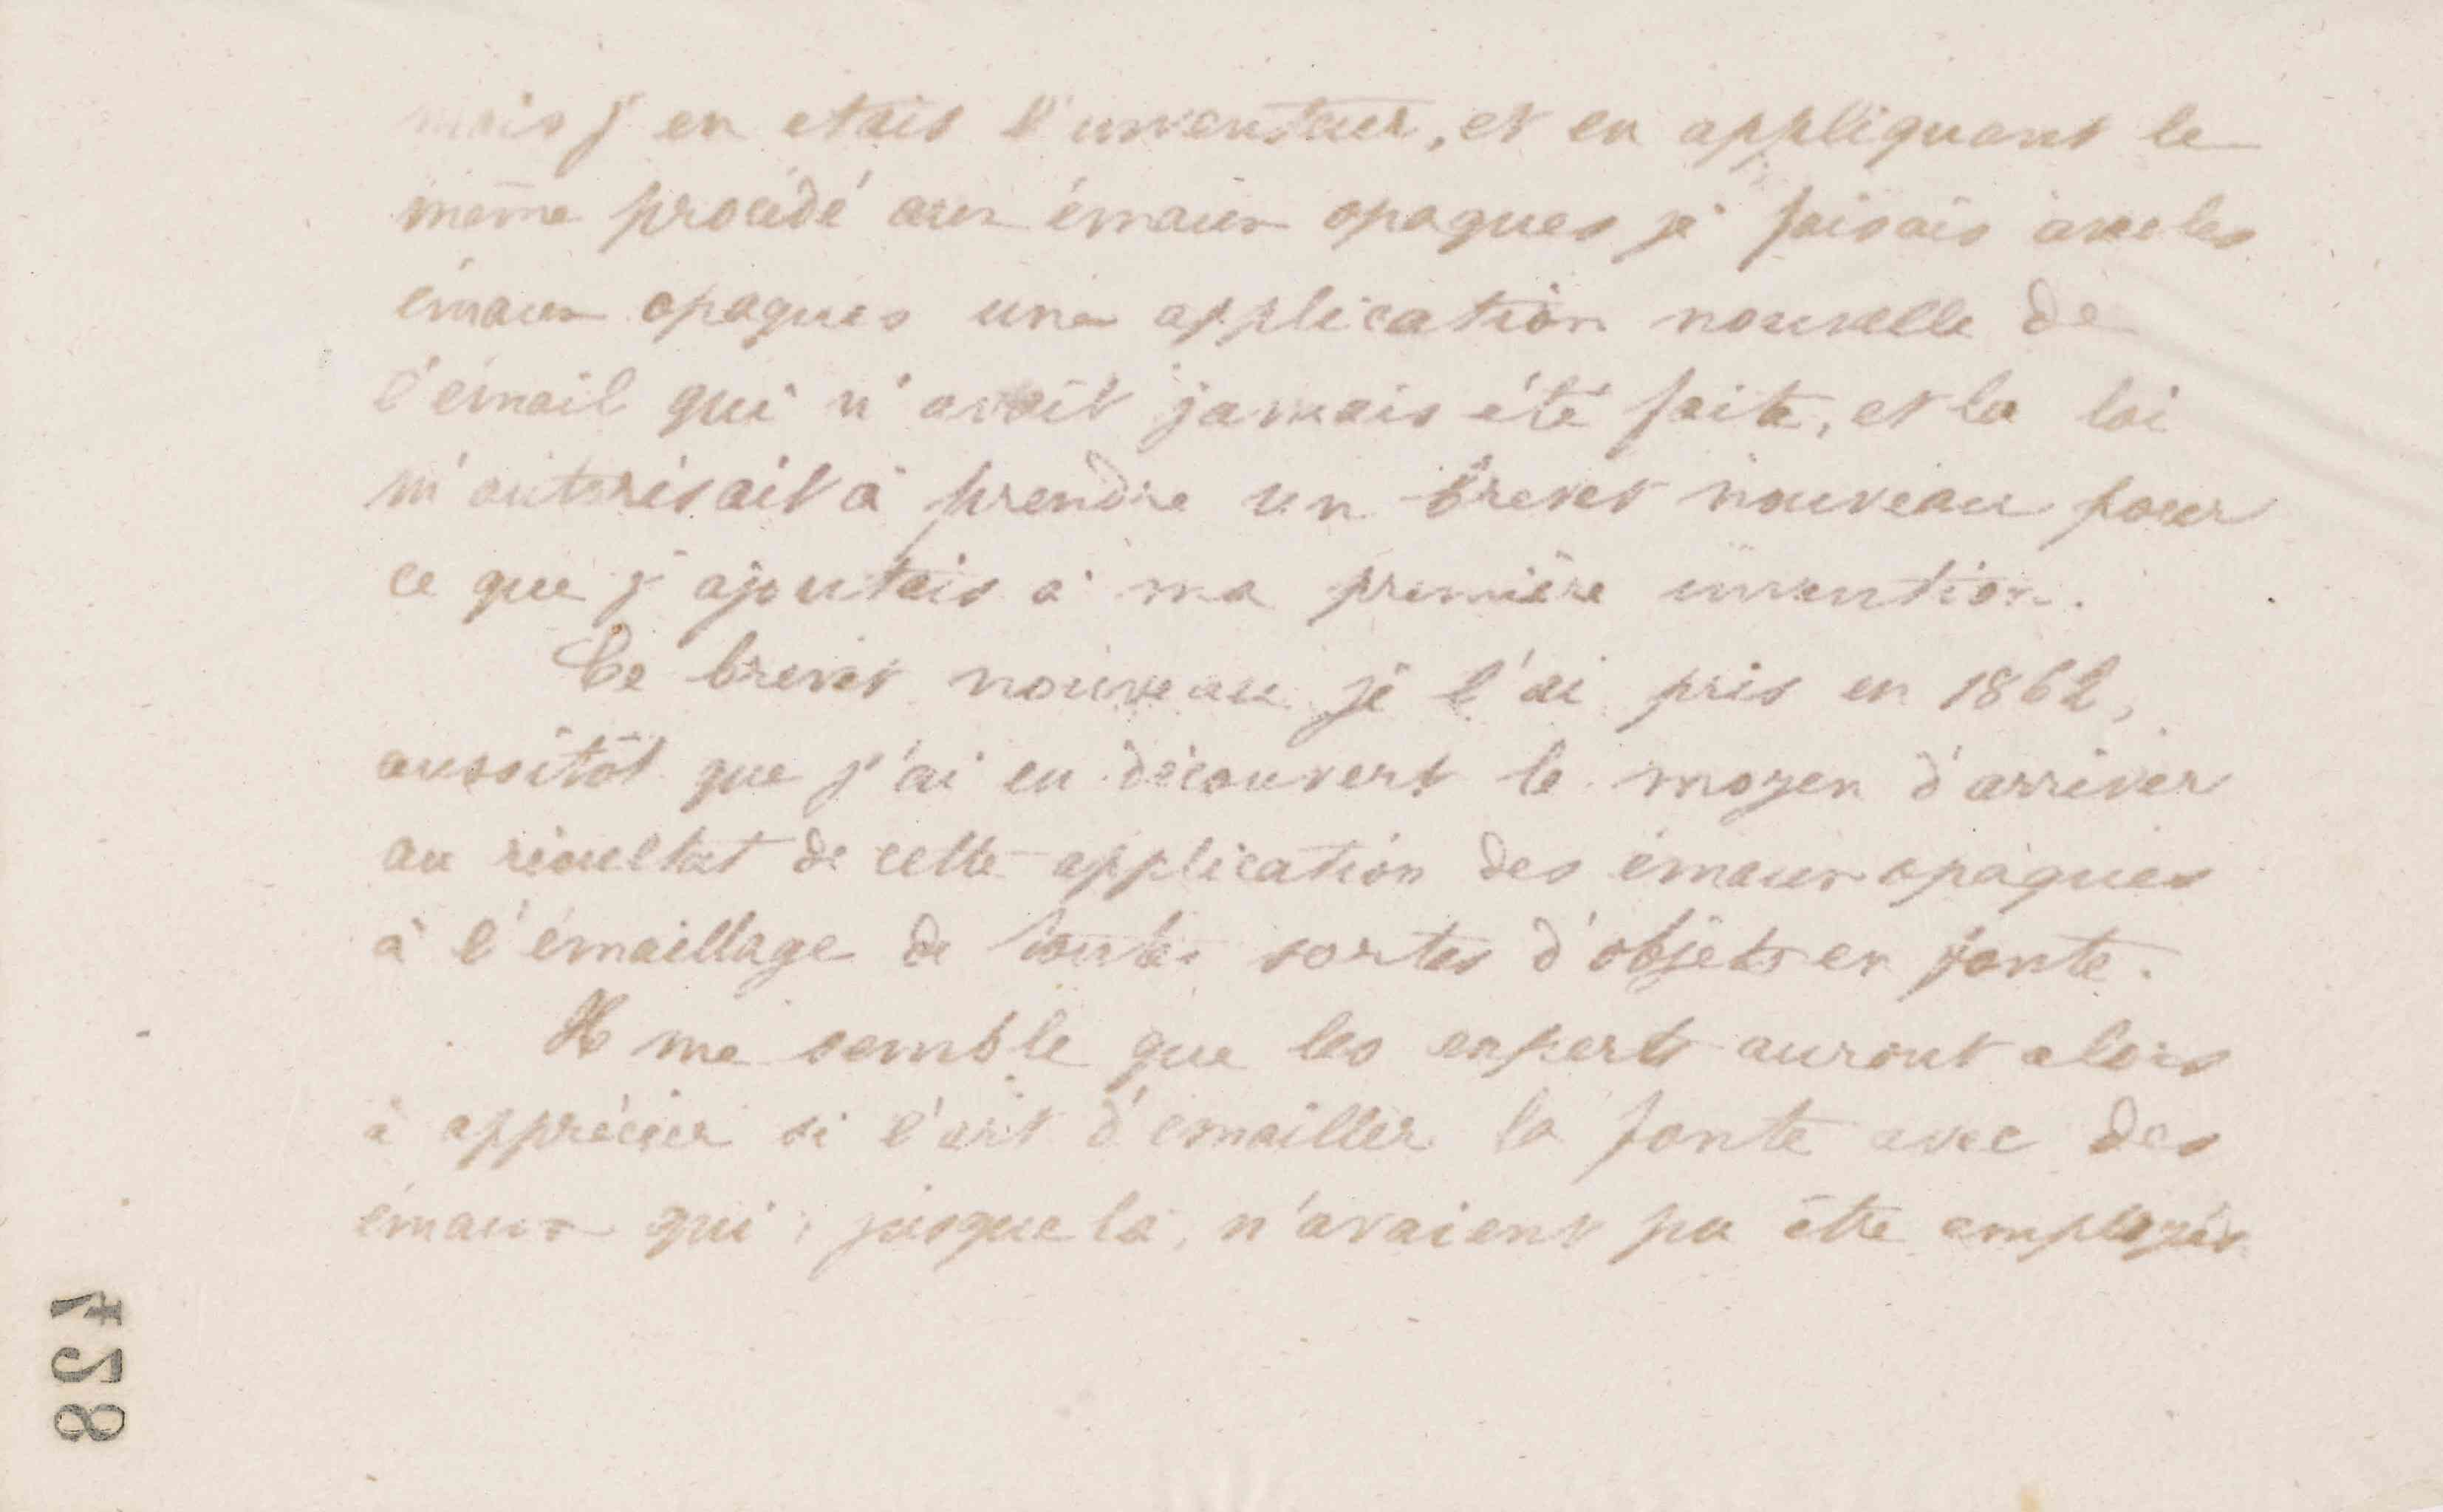 mais j'en etais l'inventeur, et en appliquant le
même procédé aux émaux opaques je faisais avec les
émaux opaques une application nouvelle de
l'émail qui n'avait jamais été faite, et la loi
m'autorisait à prendre un brevet nouveau pour
ce que j'ajoutais à ma première invention.
Ce brevet nouveau je l'ai pris en 1862,
aussitôt que j'ai eu découvert le moyen d'arriver
au résultat de cette application des émaux opaques
à l'émaillage de toutes sortes d'objets en fonte.
Il me semble que les experts auront alors
à apprécier si l'art d'émailler la fonte avec des
émaux qui, jusque là, n'avaient pu être employés
428